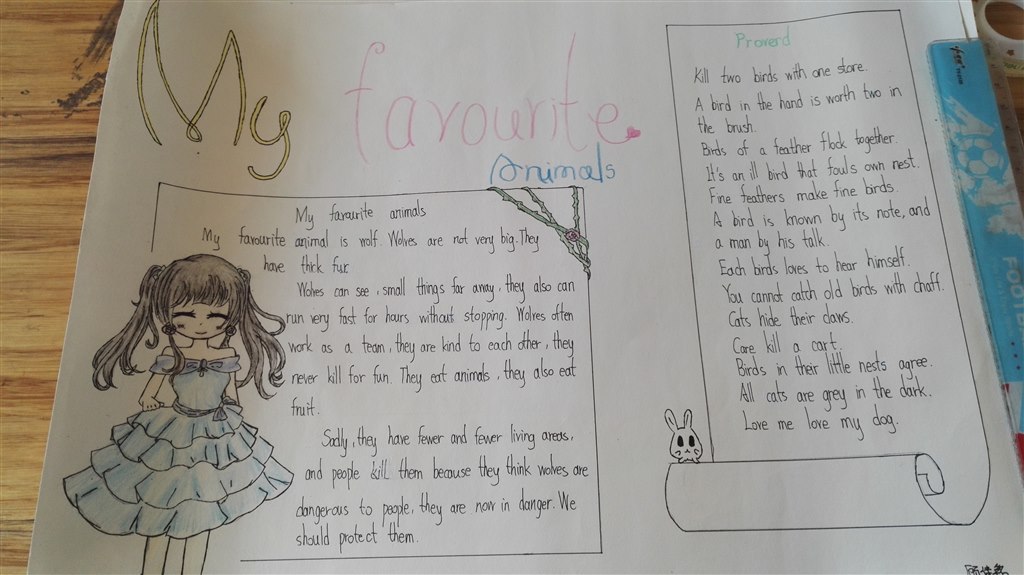 My
favourite
Animals
My favourite animals
My favourite animal is wolf. Wolves are not very big. They
have thick fur.
Wolves can see, small things far away, they also can
run very fast for hours without stopping. Wolves often
work as a team, they are kind to each other, they
never kill for fun. They eat animals, they also eat
fruit.
Sadly, they have fewer and fewer living areas,
and people kill them because they think wolves are
dangerous to people, they are now in danger. We
should protect them.
Proverd
Kill two birds with one store.
A bird in the hand is worth two in
the brush.
Birds of a feather flock together.
It's an ill bird that fouls own nest.
Fine feathers make fine birds.
A bird is known by its note, and
a man by his talk.
Each birds loves to hear himself.
You cannot catch old birds with chaff.
Cats hide their claws.
Care kill a cart.
Birds in their little nests agree.
All cats are grey in the dark.
Love me love my dog.